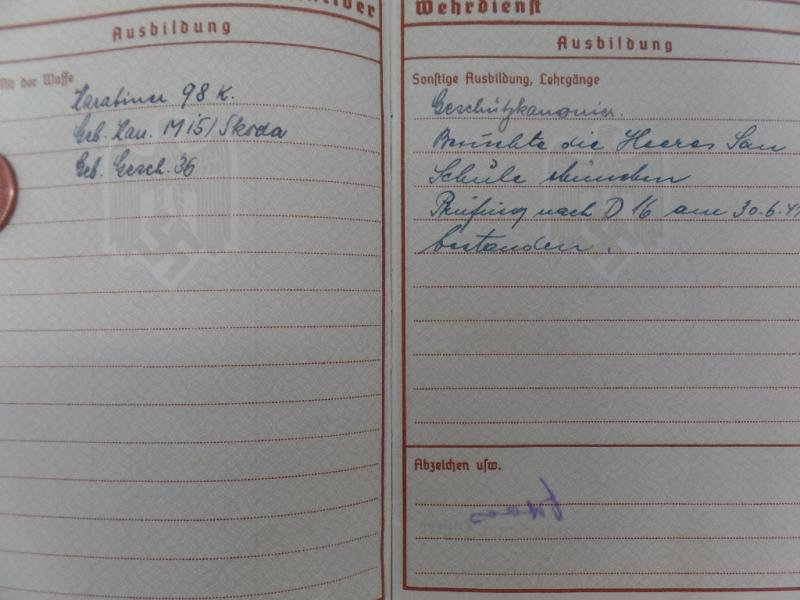 Ausbildung
mit der Waffe
Karabiner 98 K.
Geb. Kan. M 15/Skoda
Geb. Gesch. 36
Wehrdienst
Ausbildung
Sonstige Ausbildung, Lehrgänge
Geschützkanonier.
Besuchte die Heeres San
Schule München
Prüfung nach D 16 am 30.6.4
bestanden.
Abzeichen usw.